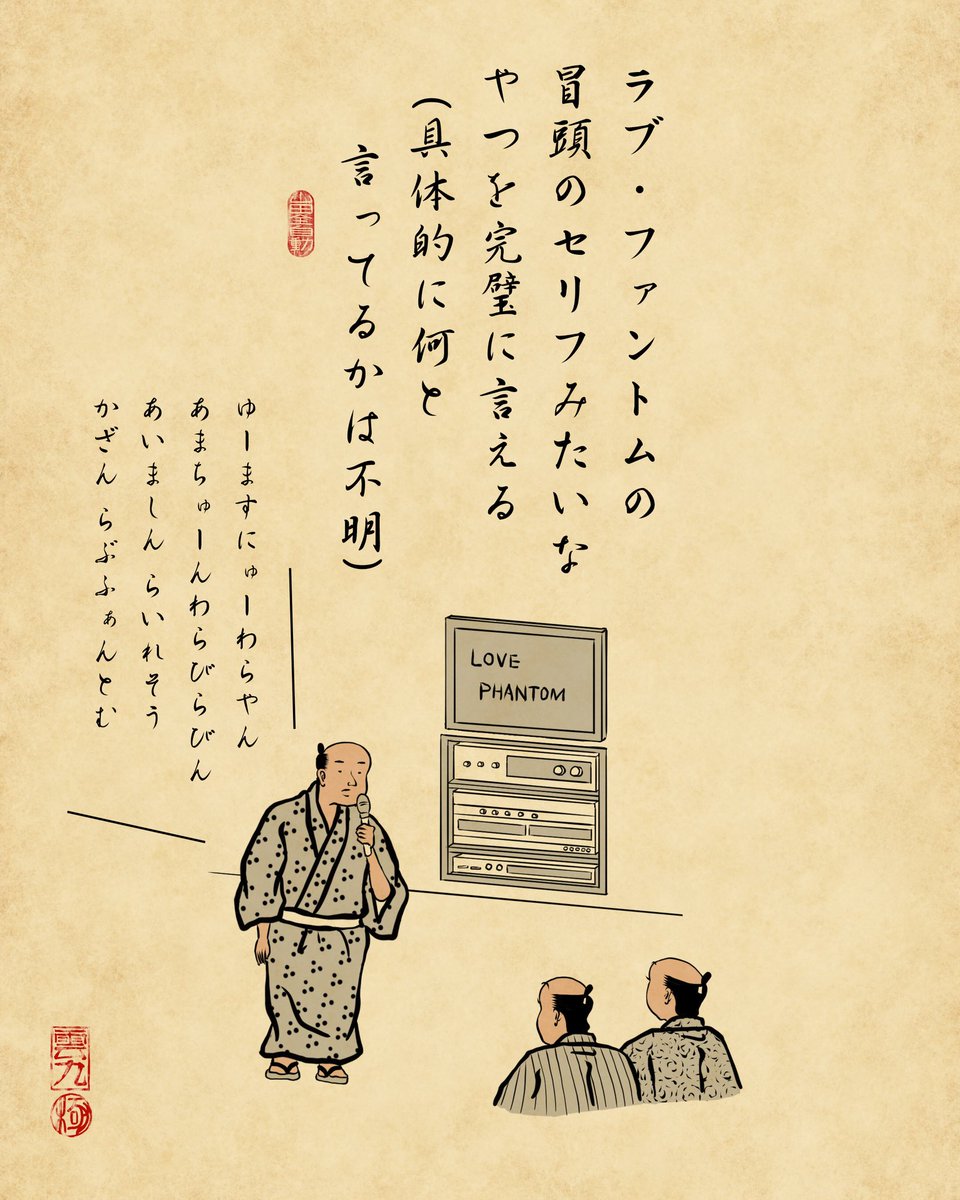 ラブ・ファントムの
冒頭のセリフみたいな
やつを完璧に言える
(具体的に何と
言ってるかは不明)
ゆーますにゅーわらやん
あまちゅーんわらびらびん
あいましん らいれそう
かざん らぶふぁんとむ
LOVE
PHANTOM